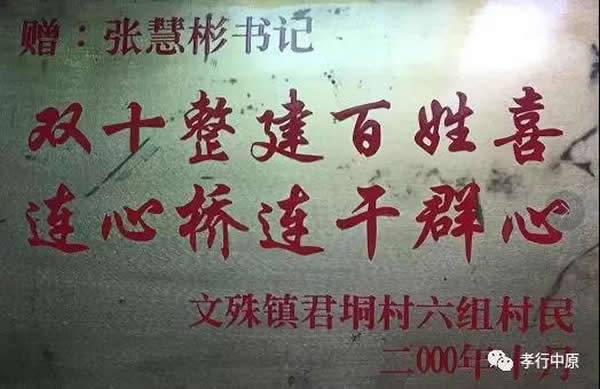 赠：张慧彬书记
双十整建百姓喜
连心桥连干群心
文殊镇君垌村六组村民
二000年十月
孝行中原